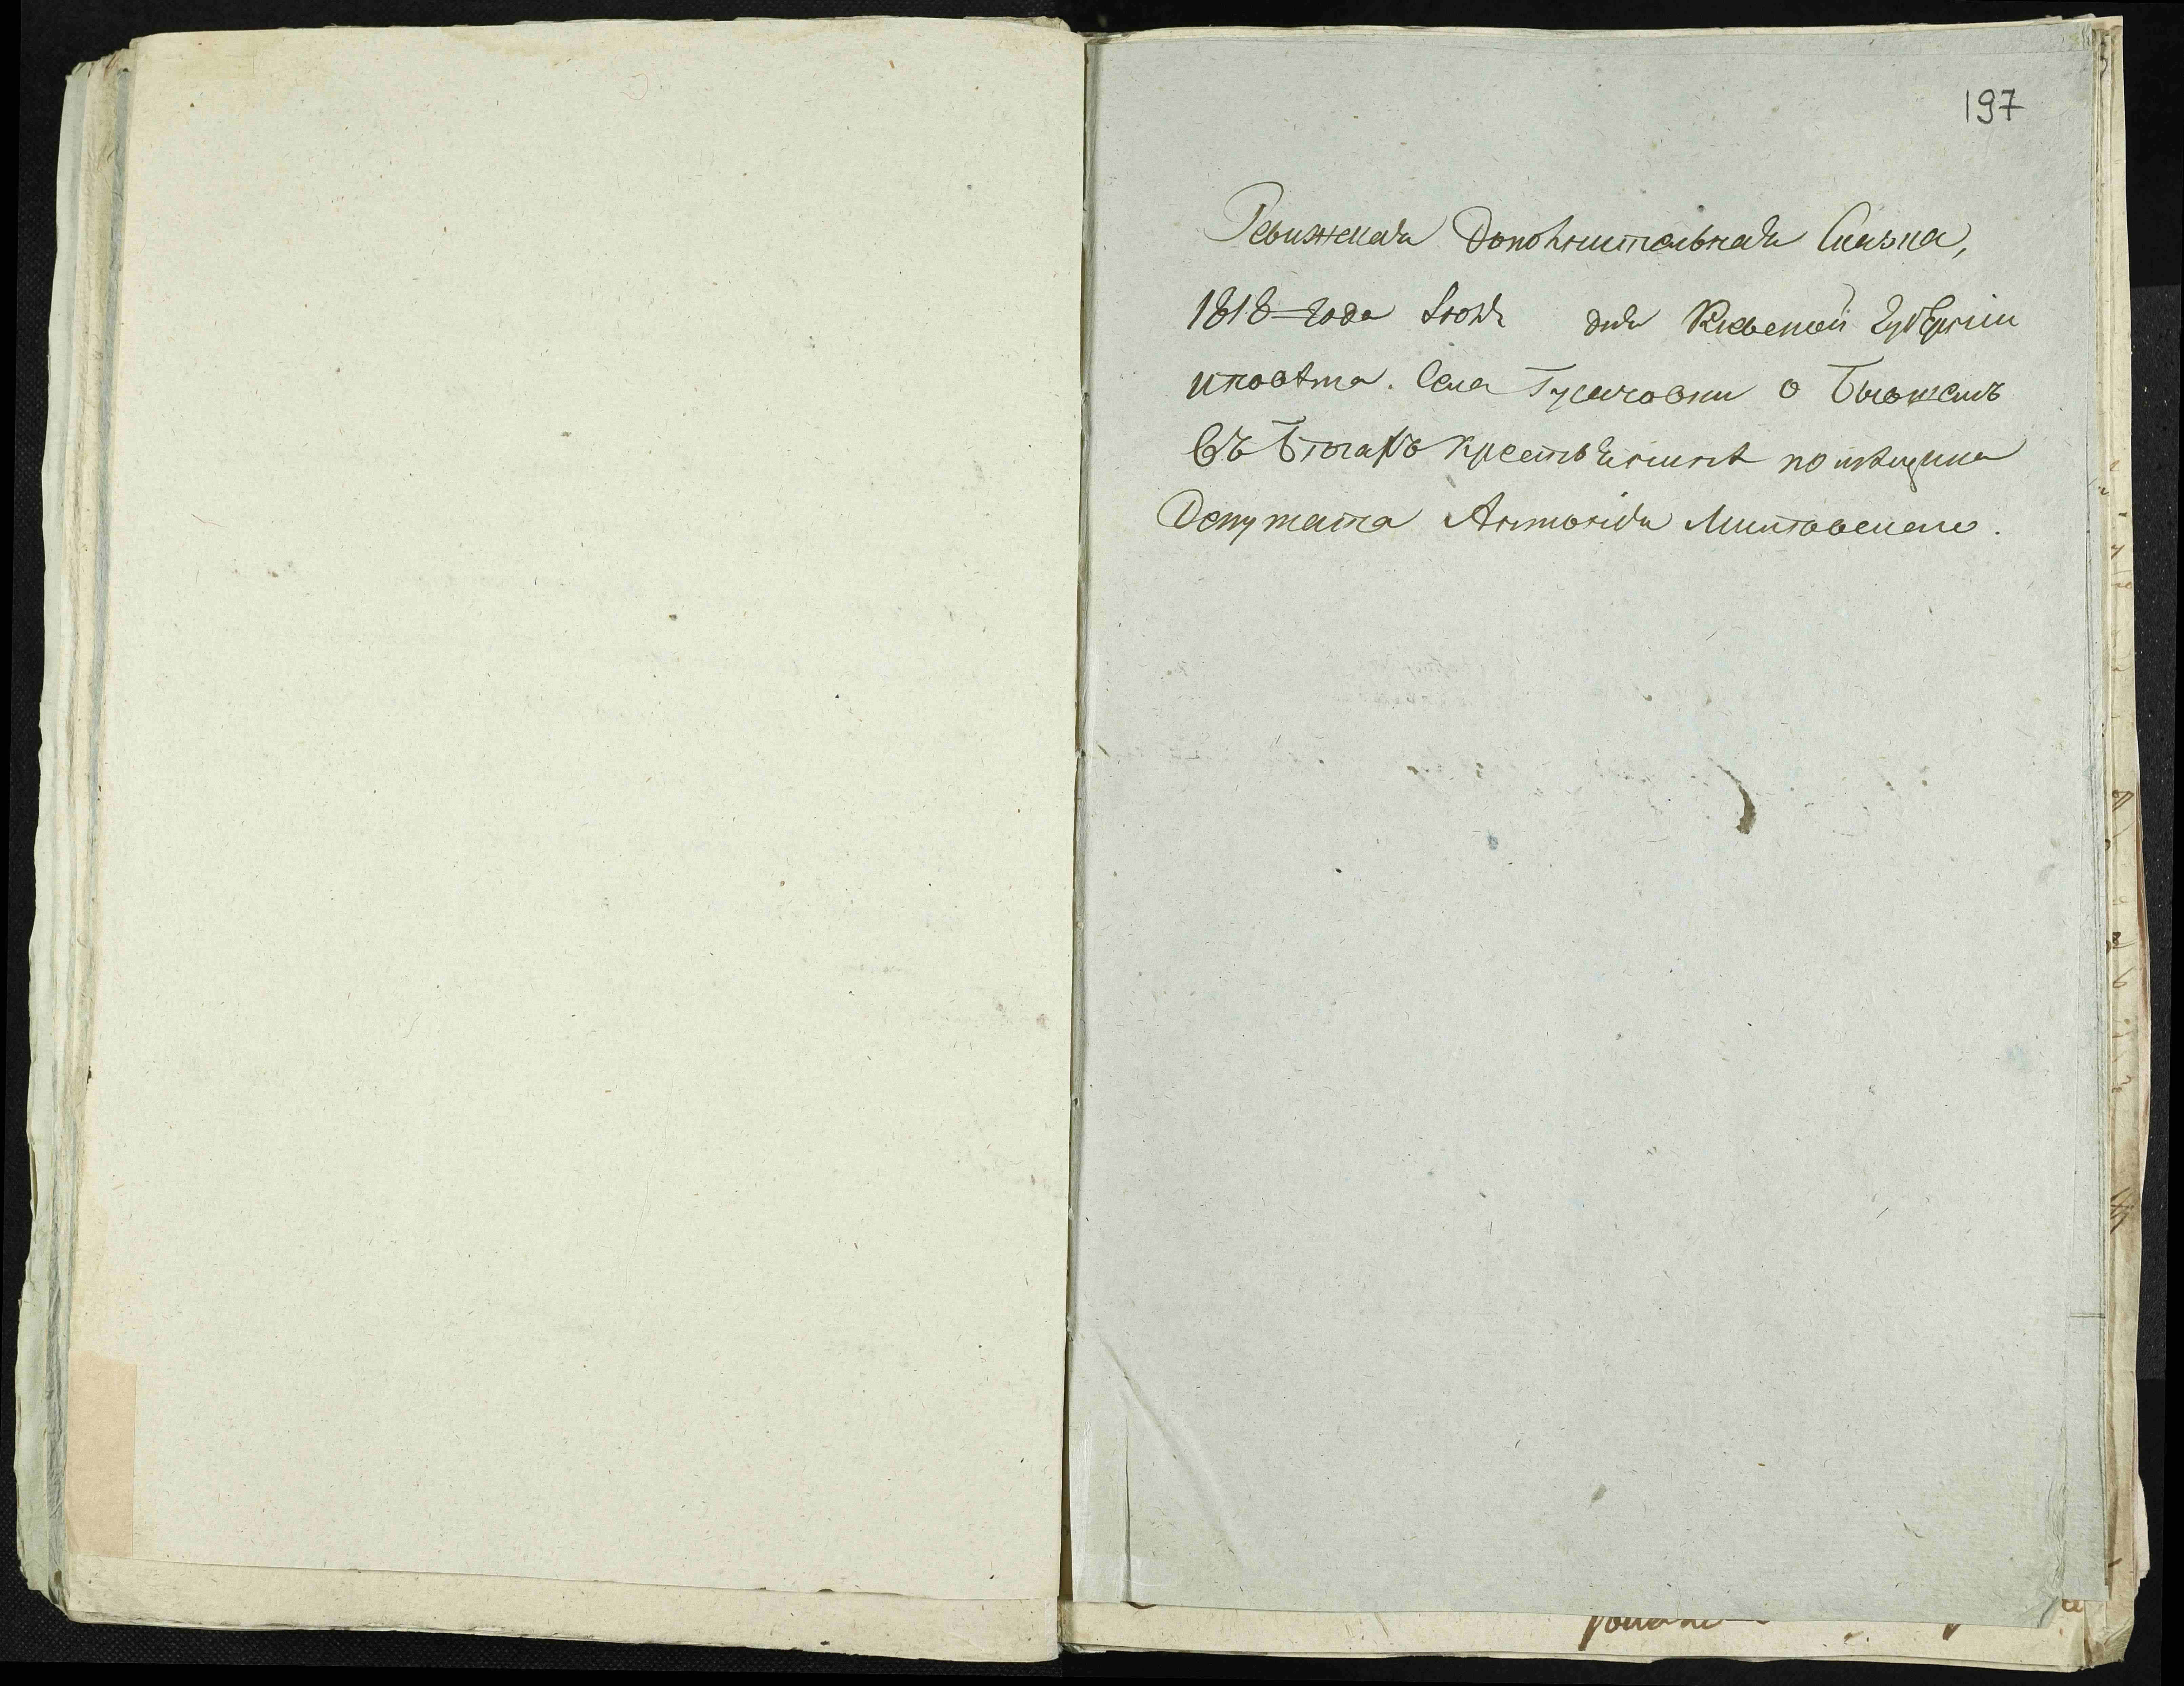 197
Ревижская дополнительная Сказка,
1818 года Іюня дня Кіевской губерніи
иповѣта. Села Гусачовки о бывшемъ
въ бегахъ крестьянинѣ помѣщика
Депутата Антонія